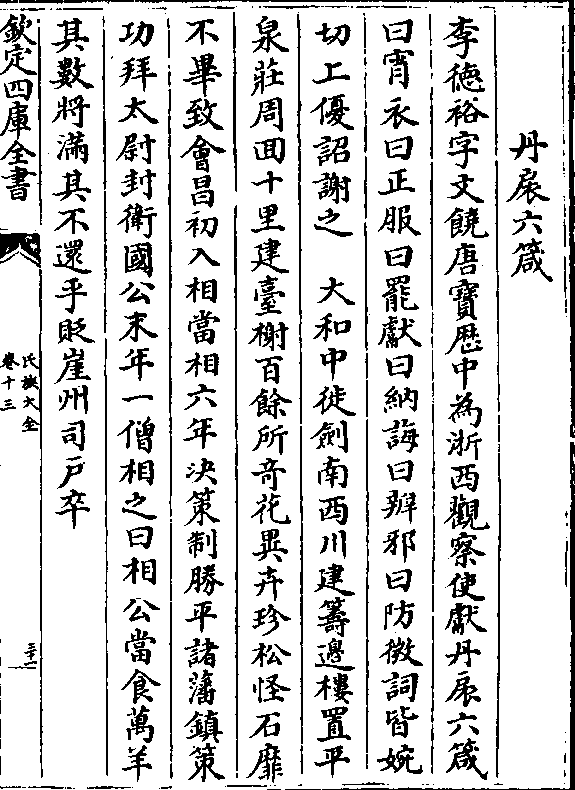 丹扆六箴
李德裕字文饒唐寶歷中為浙西觀察使獻丹扆六箴
曰宵衣曰正服曰罷獻曰納誨曰辨邪曰防微詞皆婉
切上優詔謝之　大和中徙劍南西川建籌邊樓置平
泉莊周回十里建臺榭百餘所奇花異卉珍松怪石靡
不畢致會昌初入相當相六年决策制勝平諸藩鎮策
功拜太尉封衛國公末年一僧相之曰相公當食萬羊
其數將滿其不還乎貶崖州司戶卒
欽定四庫全書
氏族大全
卷十三
三十一